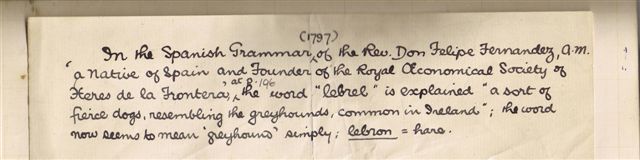 (1797)
In the Spanish Grammar, of the Rev. Don Felipe Fernandez, A.M.
"a Native of Spain and Founder of the Royal Œconomical Society of
at p. 196
Xeres de la Frontera, the word "lebrel" is explained "a sort of
fierce dogs, resembling the greyhounds, common in Ireland"; the word
now seems to mean 'greyhound' simply; lebron = hare.